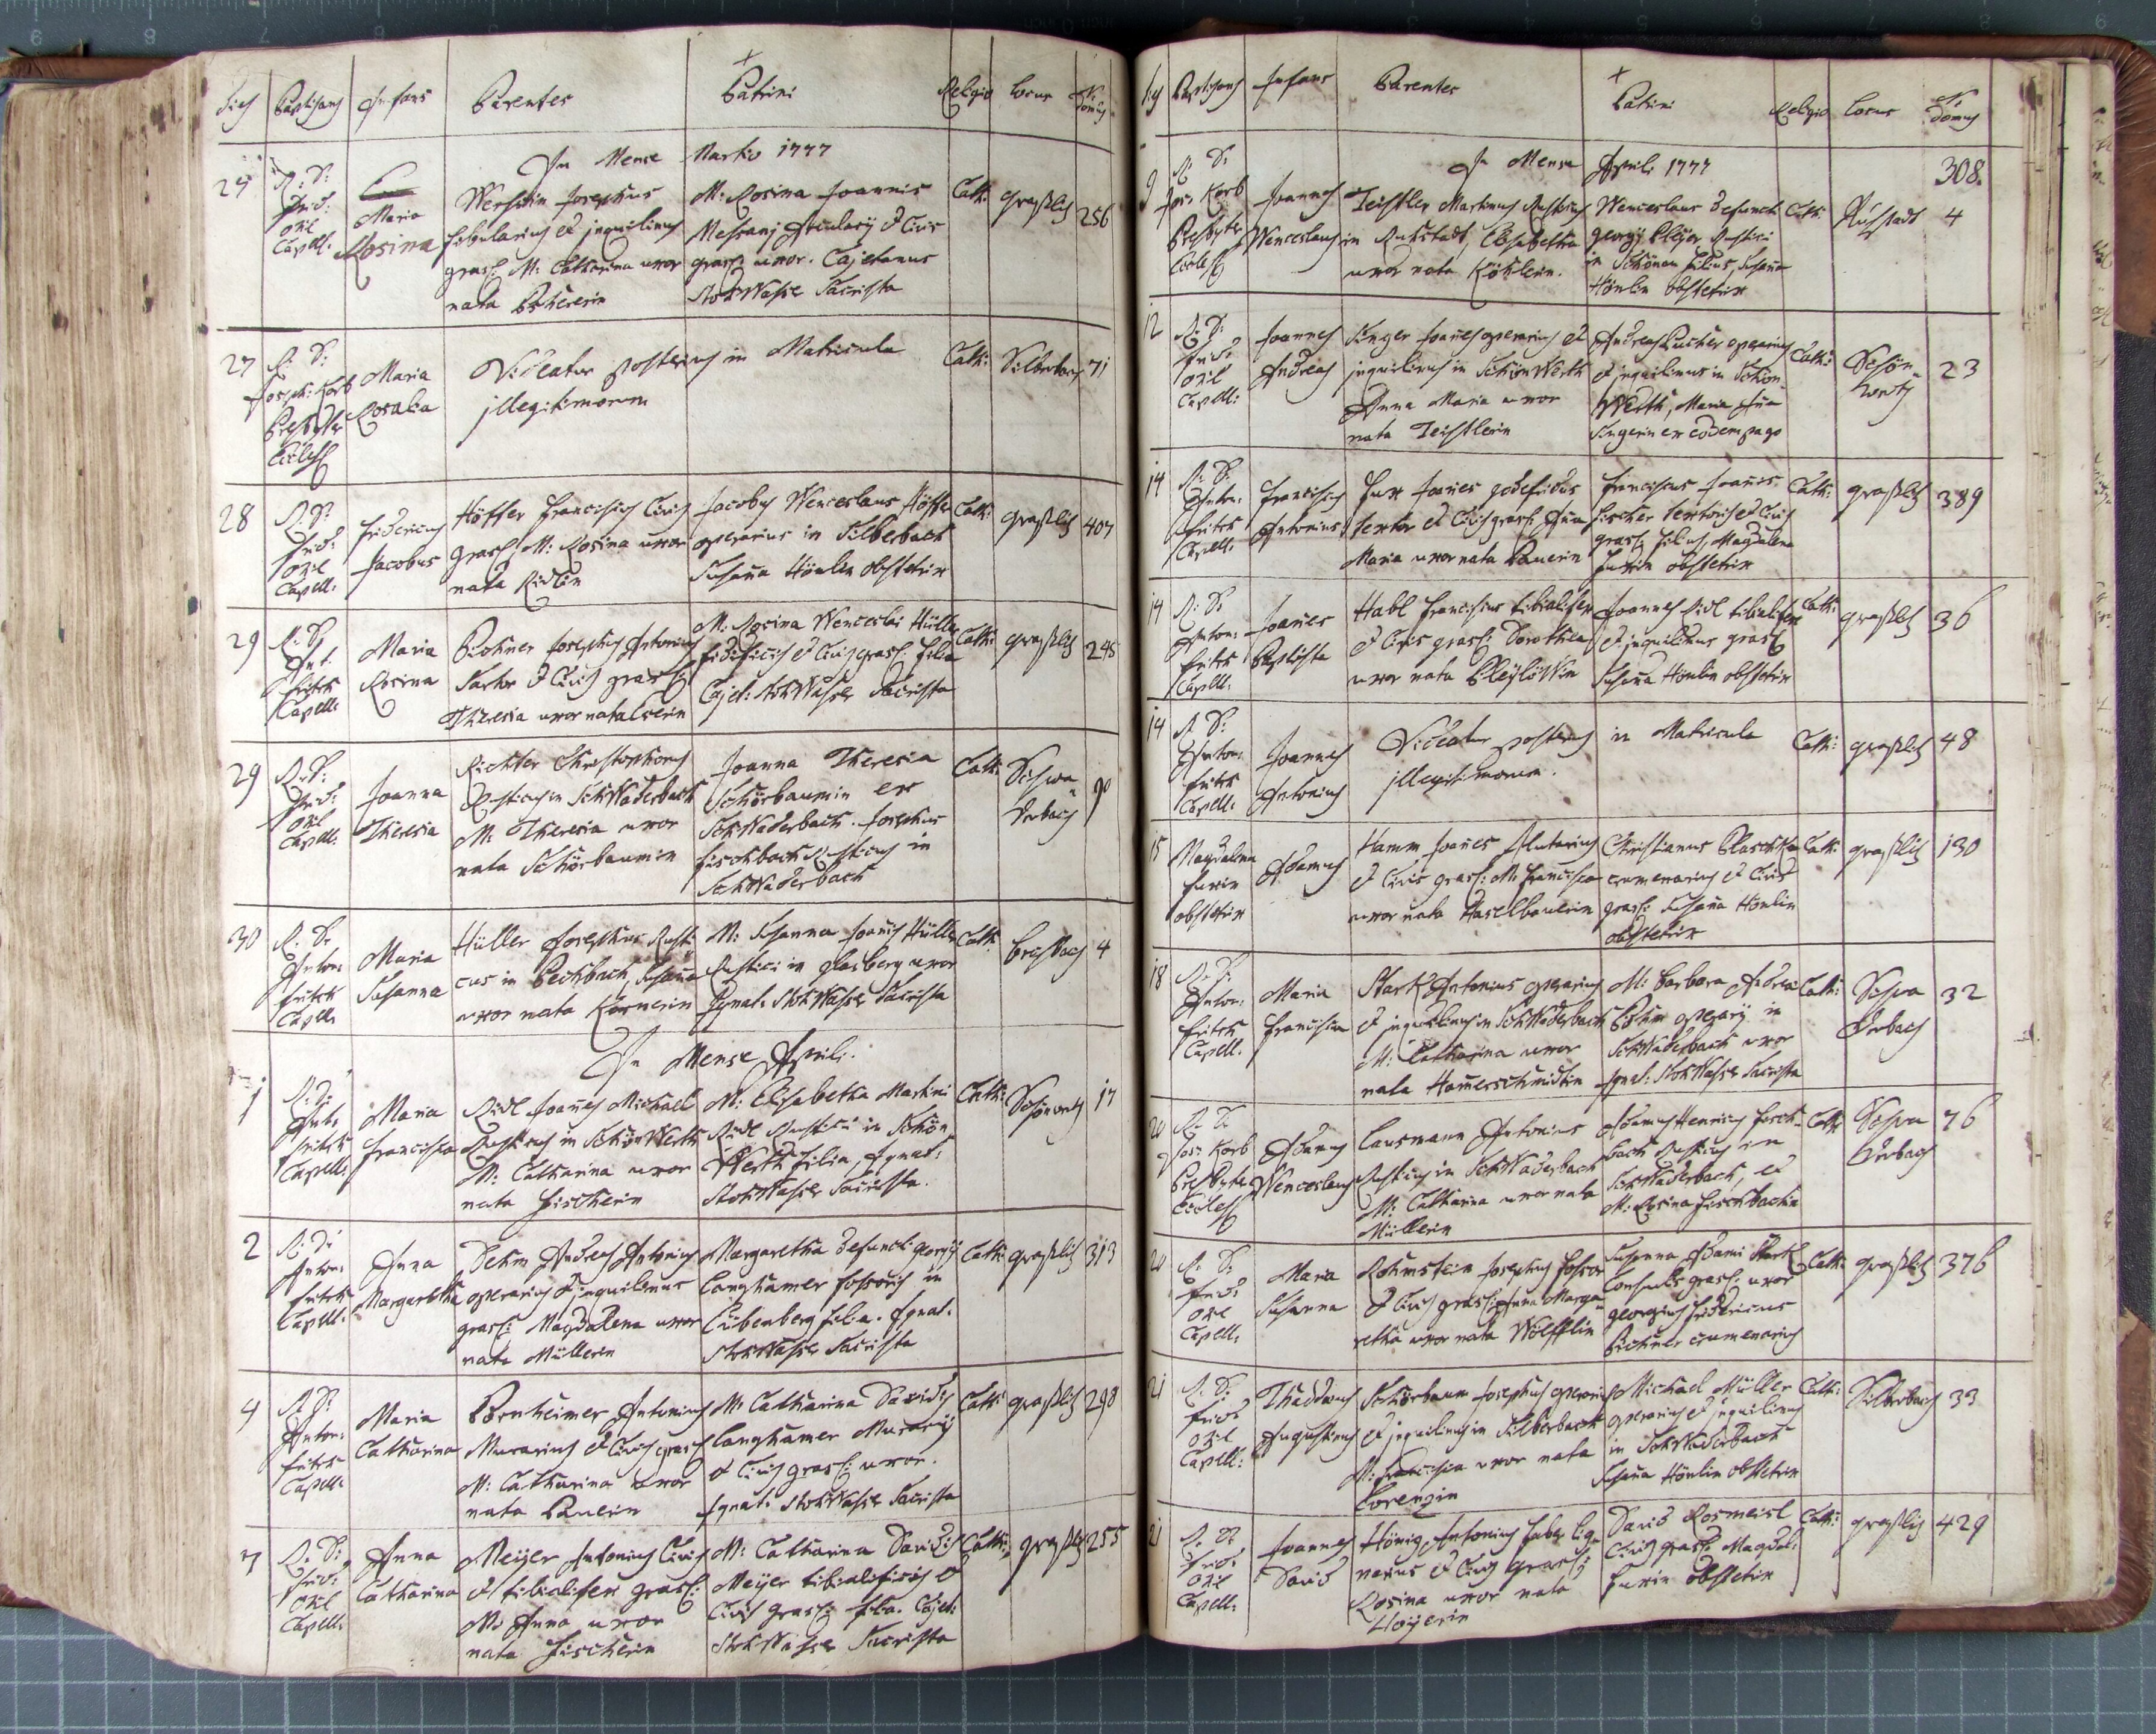 Dies Baptisans Infans Parentes Patrini Religio Locus N. domus
In Mense Martio 1777
25 R: D: Frid: Oxl Capell:
Maria Rosina
Josephus
fibularius et inquilinus
grasl: M: Catharina uxor
nata
M: Rosina Joannis
et Civis
grasl: uxor. Cajetanus
Stokwasser Sacrista
Cath: Graßlitz 256
27 R: D: Joseph: Korb Presbyter
Maria Rosalia
Videatur posterius in Matricula
illegitimorum
Cath: Silberbach 71
28 R: D: Frid: Oxl Capell:
Fridericus Jacobus
Höffer Franciscus Civis
grasl: M: Rosina uxor
nata Ridlin
Jacobus Wenceslaus Höffer
operarius in Silberbach
Susaña Hönlin obstetrix
Cath: Graßlitz 407
29 R: D: Ant: Fritsch Capell:
Maria Rosina
Pichner Josephus Antonius
Sartor et Civis grasl:
Theresia uxor nata
M: Rosina Wenceslai Hüller
et Civis grasl: filia
Cajet: Stokwasser Sacrista
Cath: Graßlitz 245
29 R: D: Frid: Oxl Capell:
Joanna Theresia
Richter Christophorus
Rusticus in Schwaderbach
M: Theresia uxor
nata Schörbaumin
Joanna Theresia
Schörbaumin ex
Schwaderbach. Josephus
Fischbach Rusticus in
Schwaderbach
Cath: Schwaderbach 90
30 R: D: Anton: Fritsch Capell:
Maria Susanna
Hüller Josephus Rusti-
cus in Pechbach, Susaña
uxor nata Körnerin
M: Susanna Joañis Hüller
Rustici in Glasberg uxor
Ignat: Stokwasser Sacrista
Cath: 4
In Mense Aprili.
1 R: D: Ant: Fritsch Capell:
Maria Francisca
Ridl Joañes Michael
Rusticus in Schönwerth
M: Catharina uxor
nata Fischerin
M: Elisabetha Martini
Ridl Rustici in Schön-
werth filia, Ignat:
Stokwasser Sacrista.
Cath: Schönwerth 17
2 R: D: Anton: Fritsch Capell:
Anna Margaretha
Dehm Andreas Antonius
operarius et inquilinus
grasl: Magdalena uxor
nata Müllerin
Margaretha defuncti Georgii
Langhamer fossoris in
Eibenberg filia. Ignat:
Stokwasser Sacrista
Cath: Graßlitz 313
4 R: D: Anton: Fritsch Capell:
Maria Catharina
Bornheimer Antonius
Murarius et Civis grasl:
M: Catharina uxor
nata Bauerin
M: Catharina Davidis
Langhamer Murarii
et Civis grasl: uxor.
Ignat: Stokwasser Sacrista
Cath: Graßlitz 298
7 R: D: Frid: Oxl Capell:
Anna Catharina
Meÿer Antonius Civis
et tibialifex grasl:
M: Anna uxor
nata Fischerin
M: Catharina Davidis
Meÿer tibialificis et
Civis grasl: filia. Cajet:
Stokwasser Sacrista
Cath: Graßlitz 255
Dies Baptisans Infans Parentes Patrini Religio Locus N. domus
In Mense Aprili 1777
308.
9 R: D: Jos: Korb Presbyter
Joannes Wenceslaus
Teischler Martinus Rusticus
in Ruhstadt, Elisabetha
uxor nata Köhlerin.
Wenceslaus defuncti
Georgii Pleÿer Rustici
in Schönau filius, Susaña
Hönlin obstetrix
Cath: Ruhstadt 4
12 R: D: Frid: Oxl Capell:
Joannes Andreas
Singer Joañes operarius et
inquilinus in Schönwerth
Anna Maria uxor
nata Teischlerin
Andreas Pucher operarius
et inquilinus in Schön-
werth, Maria Aña
Singerin ex eodem pago
Cath: Schönwerth 23
14 R: D: Anton: Fritsch Capell:
Franciscus Antonius
Fux Joañes Godefridus
textor et Civis grasl: Aña
Maria uxor nata Bauerin
Franciscus Joañis
Fischer textoris et Civis
grasl: filius, Magdalena
Fuxin obstetrix
Cath: Graßlitz 389
14 R: D: Anton: Fritsch Capell:
Joañes Baptista
Habl Franciscus tibialifex
et Civis grasl: Dorothea
uxor nata
Joannes Ridl tibialifex
et inquilinus grasl:
Susaña Hönlin obstetrix
Cath: Graßlitz 36
14 R: D: Anton: Fritsch Capell:
Joannes Antonius
Videatur posterius in Matricula
illegitimorum.
Cath: Graßlitz 48
15 Magdalena Fuxin obstetrix
Adamus
Hamm Joañes
et Civis grasl: M: Francisca
uxor nata Haselbauerin
Christianus Plaschka
crumenarius et Civis
grasl: Susaña Hönlin
obstetrix
Cath: Graßlitz 130
18 R: D: Anton: Fritsch Capell:
Maria Francisca
Stark Antonius operarius
et inquilinus in Schwaderbach
M: Catharina uxor
nata Hamerschmidtin
M: Barbara Andreæ
Böhm operarii in
Schwaderbach uxor
Ignat: Stokwasser Sacrista
Cath: Schwaderbach 32
20 R: D: Jos: Korb Presbyter
Adamus Wenceslaus
Lausmann Antonius
Rusticus in Schwaderbach
M: Catharina uxor nata
Müllerin
Adamus Henricus Fisch-
bach Rusticus in
Schwaderbach, et
M: Rosina Fischbachin
Cath: Schwaderbach 76
20 R: D: Frid: Oxl Capell:
Maria Susanna
Rohmstein Josephus fossor
et Civis grasl: Anna Marga-
retha uxor nata Wölfflin
Susanna Adami Stark
Consulis grasl: uxor
Georgius Fridericus
Pichner crumenarius
Cath: Graßlitz 376
21 R: D: Frid: Oxl Capell:
Thaddæus Augustinus
Schörbaum Josephus operarius
et inquilinus in Silberbach
M: Francisca uxor nata
Lorenzin
Michael Müller
operarius et inquilinus
in Schwaderbach
Susaña Hönlin obstetrix
Cath: Silberbach 33
21 R: D: Frid: Oxl Capell:
Joannes David
Hönig Antonius faber lig-
narius et Civis grasl:
Rosina uxor nata
Hoÿerin
David Rosmeisl
Civis grasl: Magdal:
Fuxin obstetrix
Cath: Graßlitz 429